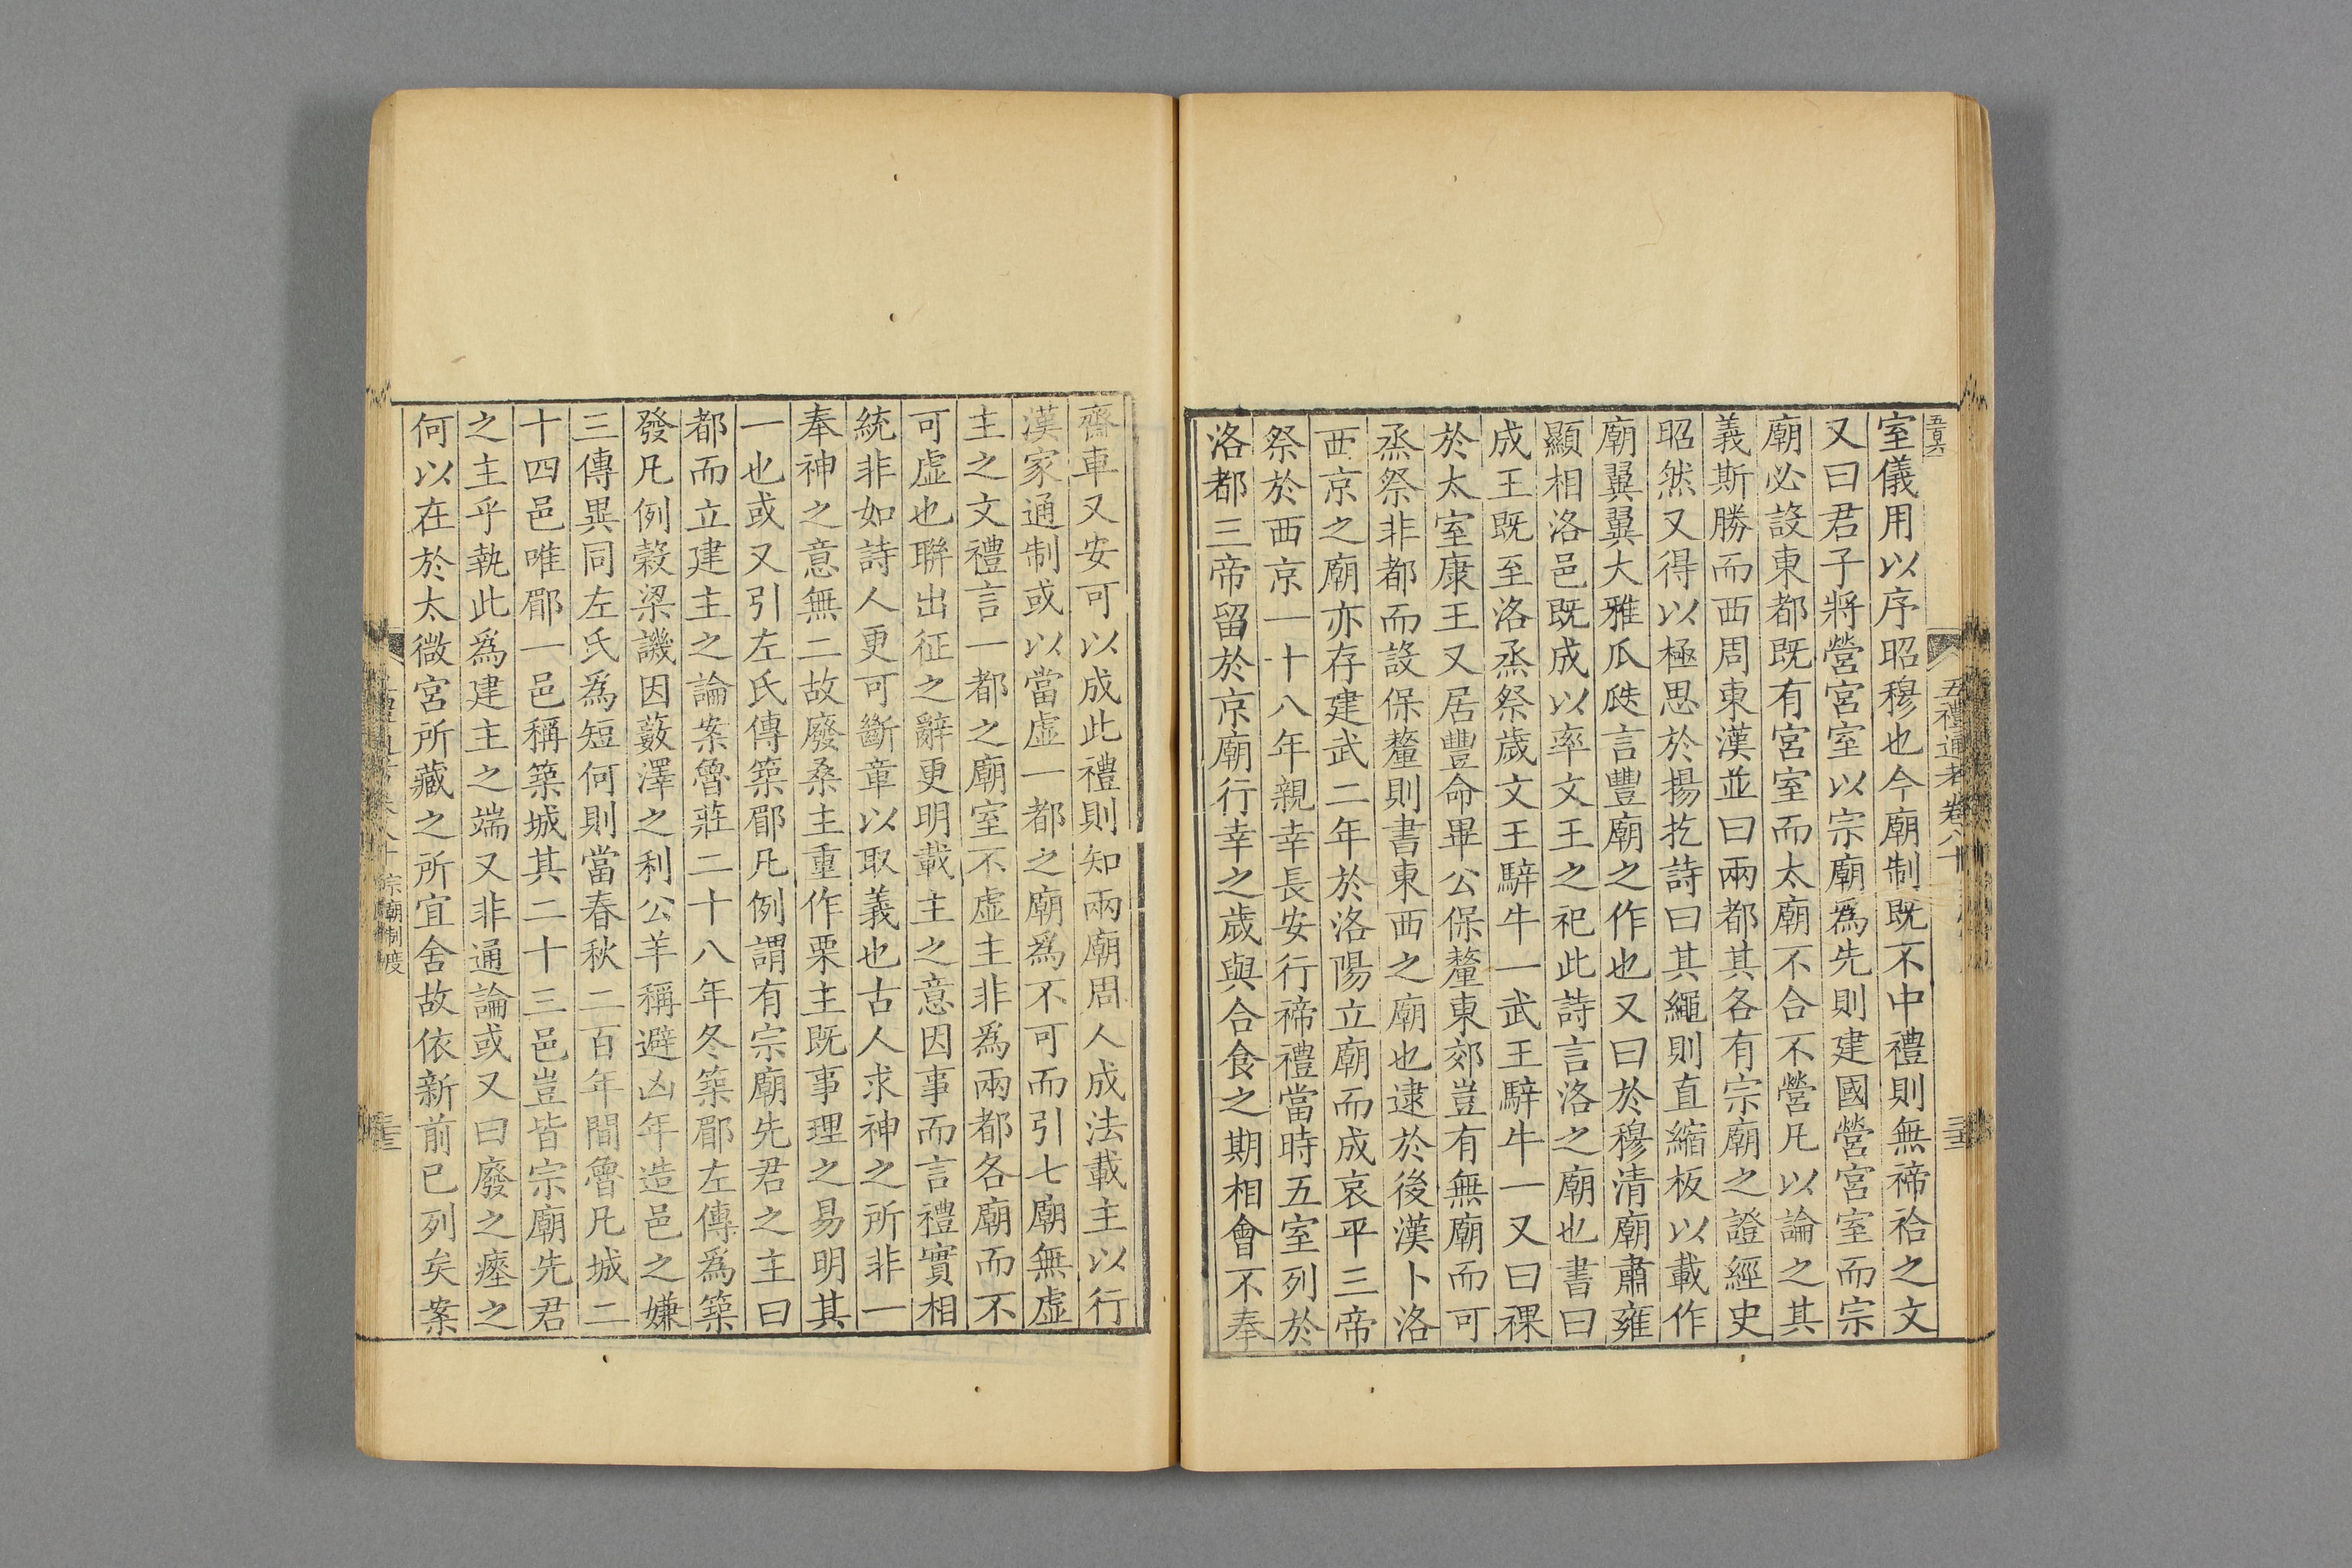 五百六
五禮通考卷八十
室儀用以序昭穆也今廟制既不中禮則無禘祫之文
又曰君子將營宮室以宗廟爲先則建國營宮室而宗
廟必設東都既有宮室而太廟不合不營凡以論之其
義斯勝而西周東漢並曰兩都其各有宗廟之證經史
昭然又得以極思於揚扢詩曰其繩則直縮板以載作
廟翼翼大雅瓜瓞言豐廟之作也又曰於穆清廟肅雍
顯相洛邑既成以率文王之祀此詩言洛之廟也書曰
成王既至洛烝祭歲文王騂牛一武王騂牛一又曰祼
於太室康王又居豐命畢公保釐東郊豈有無廟而可
烝祭非都而設保釐則書東西之廟也逮於後漢卜洛
西京之廟亦存建武二年於洛陽立廟而成哀平三帝
祭於西京一十八年親幸長安行禘禮當時五室列於
洛都三帝留於京廟行幸之歲與合食之期相會不奉
齋車又安可以成此禮則知兩廟周人成法載主以行
漢家通制或以當虛一都之廟爲不可而引七廟無虛
主之文禮言一都之廟室不虛主非爲兩都各廟而不
可虛也聯出征之辭更明載主之意因事而言禮實相
統非如詩人更可斷章以取義也古人求神之所非一
奉神之意無二故廢桑主重作栗主既事理之易明其
一也或又引左氏傳築郿凡例謂有宗廟先君之主曰
都而立建主之論案魯莊二十八年冬築郿左傳爲築
發凡例穀梁譏因藪澤之利公羊稱避凶年造邑之嫌
三傳異同左氏爲短何則當春秋二百年間魯凡城二
十四邑唯郿一邑稱築城其二十三邑豈皆宗廟先君
之主乎執此爲建主之端又非通論或又曰廢之瘞之
何以在於太微宮所藏之所宜舍故依新前已列矣案
宗廟制度